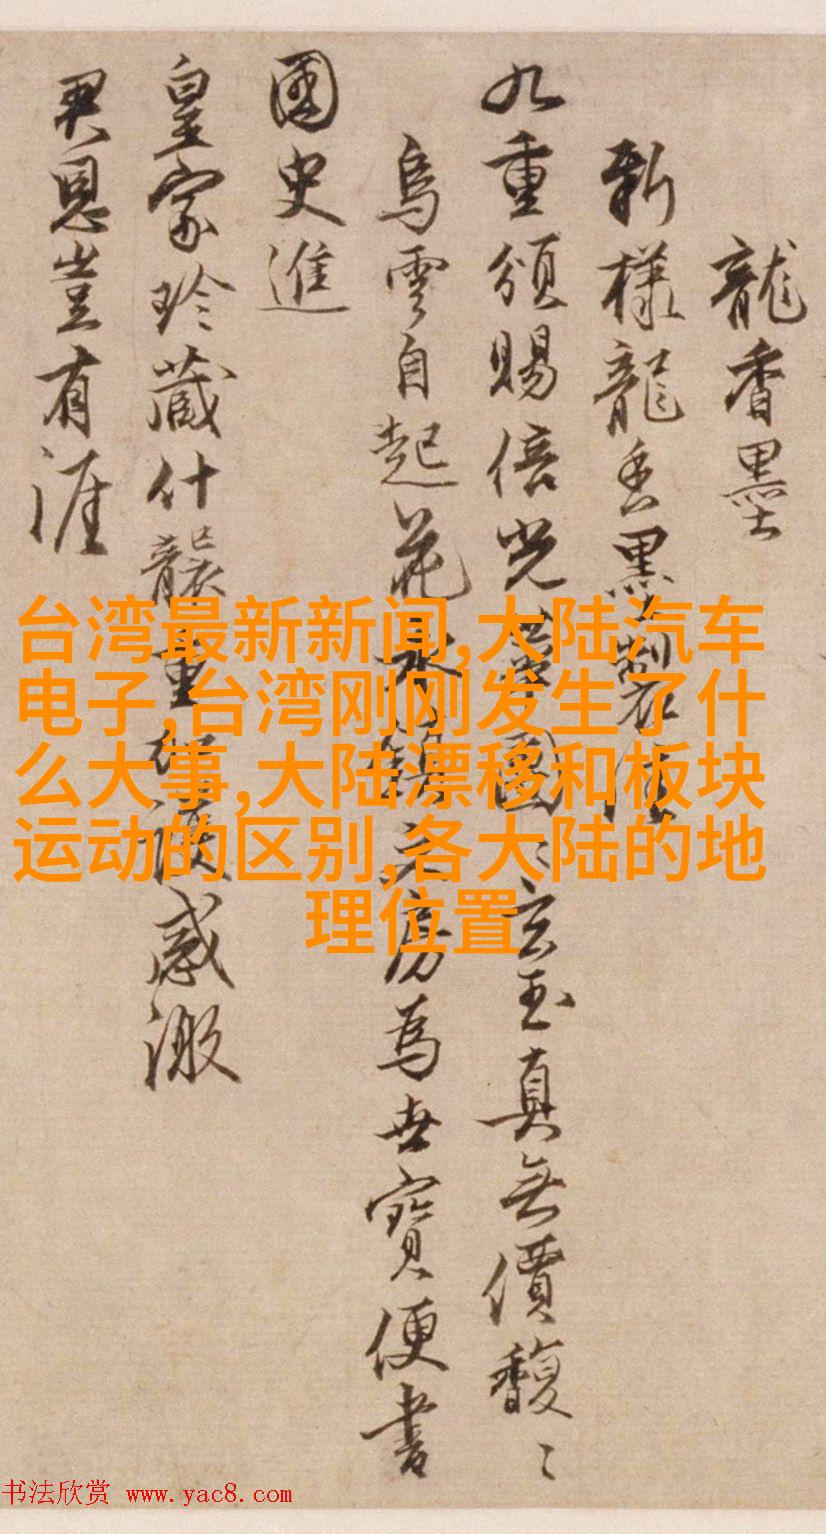 龍香墨
新樣龍香墨製
九重頒賜倍光團〻玄玉真無價馥〻
烏雲自起花永錫文房為世寶便書
國史進
皇家珍藏什襲重感激
君恩豈有涯
台湾最新新闻,大陆汽车
电子,台湾刚刚发生了什
么大事,大陆漂移和板块
运动的区别,各大陆的地
理位置
书法欣赏 www.yac8.com